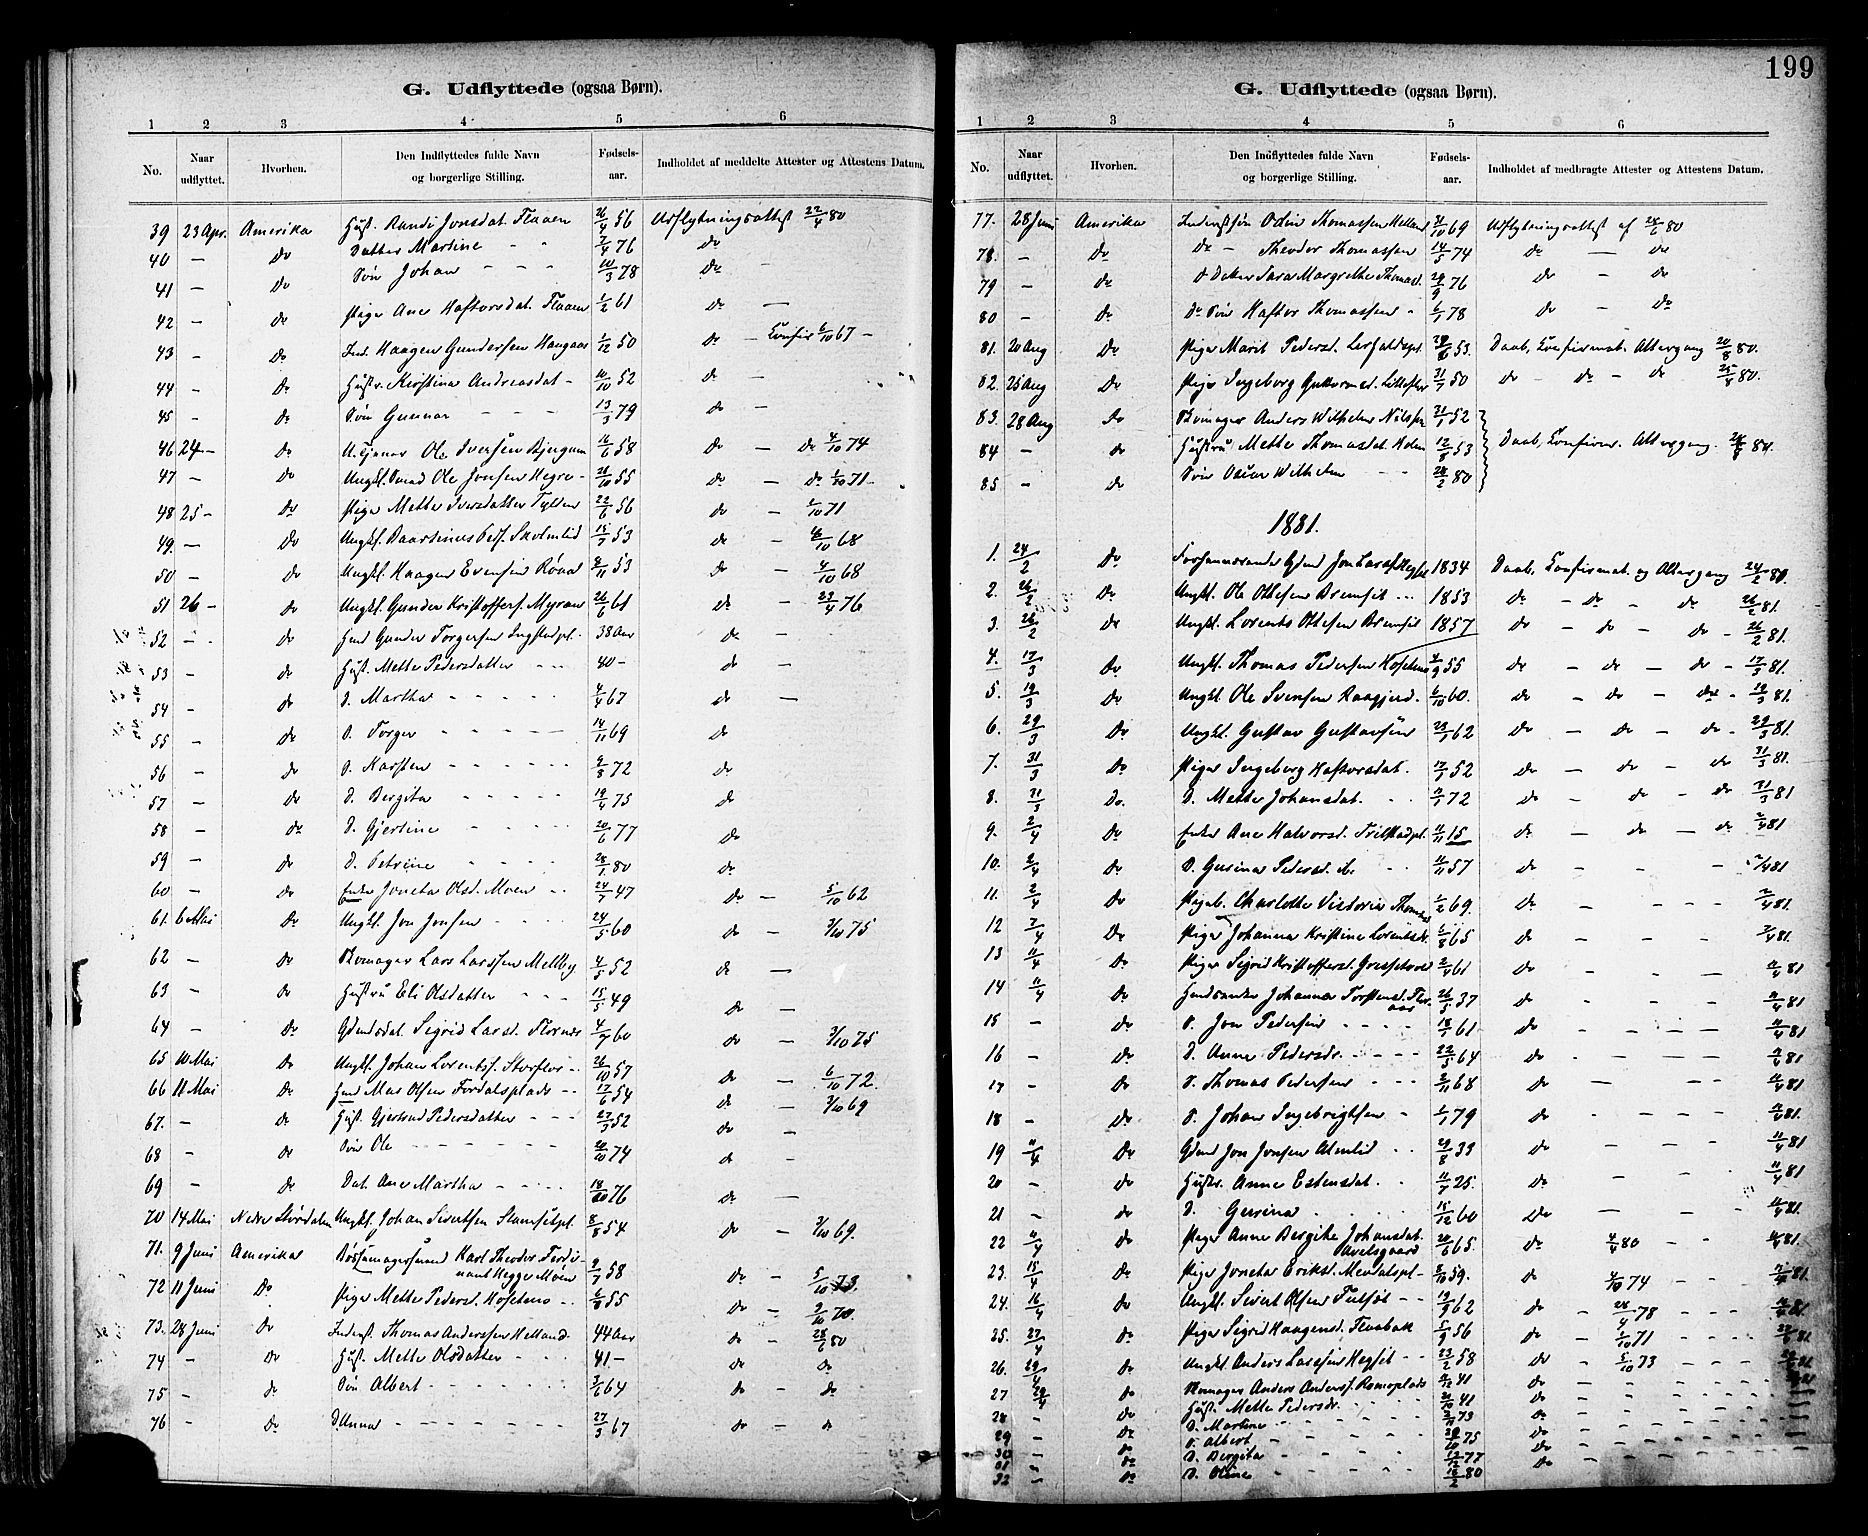 G. Udflyttede (ogsaa Børn).
1 2 3 4 5 6
No. Naar udflyttet. Hvorhen. Den Indflyttedes fulde Navn og borgerlige Stilling. Fødsels-aar. Indholdet af meddelte Attester og Attestens Datum.
39 23 Apr. Amerika Hust. Randi Jonsdat. Flaaen 26/4 56 Udflytningsattest 22/4 80
40 — Do Datter Martine - - 2/4 76 Do
41 — Do Søn Johan - - - 10/3 78 Do -
42 — Do Pige Ane Haftorsdat. Flaaen 1/2 61 Do —
43 — Do Ind. Haagen Gundersen Haugaas 1/12 50 Do — Confir 6/10 67 -
44 — Do Hustr. Kirstina Andreasdat - 10/10 52 Do -
45 — Do Søn Gunnar - - - 13/3 79 Do -
46 24 - Do Ole Iversen Bjugum 16/6 58 Do — do 4/10 74
47 — Do Ungk. Ole Jonsen Hegre - 21/10 55 Do — Do 1/10 71 -
48 25 - Do Pige Mette Iversdatter Tylden 22/6 56 Do — 1/10 71
49. — Do Ungkl. Skolmlid 15/7 53 Do — /10 68
50 — Do Ungkl. Haagen Evensen Røraas /11 53 Do — 4/10 68
51 26 - Do Ungkl. Gunder Kristoffers. Myran 26/6 61 Do — 23/4 76
52 — Do Hmd Gunder Torgersen Ingstadpl. 38 Aar Do —
53 — Do Hust. Mette Pedersdatter - - 40 - Do —
54 — Do D. Martha - - - - 4/4 67 Do —
55 — Do S. Torger - - - - 14/11 69 Do
56 — Do S. Karsten - - - - 2/3 72 Do
57 — Do D. Bergita - - - - 19/4 75 Do
58 — Do D. Gjertine - - - - 20/6 77 Do
59 — Do D. Petrine - - - - 28/1 80 Do
60 — Do Enke Joneta Olsd. Moen - - 24/7 47 Do — 5/10 62
61. 6 Mai Do Ungkl. Jon Jonsen - - - 24/5 60 Do — 3/10 75
62 — Do Skomager Lars Larssen Mellby 4/5 52 Do —
63 — Do Hustru Eli Olsdatter - - - 15/5 49 Do —
64 — Do Gdmdsdat. Sigrid Larsd. Flornes 4/7 60 Do — 3/10 75
65 10 Mai Do Ungkl. Johan Lorentss. Storflor - - 26/10 57 Do — 6/10 72.
66 11 Mai Do Hmd Mas Olsen Fordalsplads - - 17/6 54 Do — 3/10 69
67. — Do Hust. Gjertrud Pedersdatter - - - 27/3 52 Do —
68 — Do Søn Ole - - - - - 20/10 74 Do —
69 — Do Dat. Ane Martha - - - - 18/10 76 Do —
70 14 Mai Nedre Stjørdalen Ungkl. Johan Sivertsen Stamsetpl. 8/8 54 Do — 3/10 69.
71. 9 Juni Amerika Bøssemagersvend Karl Theodor Ferdi-
nant Hegge Moen 9/7 58 Do — 5/10 73.
72 11 Juni Do Pige Mette Pedersd. Hofstens - - 6/8 55 Do — 2/10 70.
73. 28 Juni Do Inderst. Thomas Anderssen Helland 44 Aar Do — 28/6 80
74 — Do Hust. Mette Olsdatter - - - 41 - Do Do
75 — do Søn Albert - - - - - 3/6 64 Do — Do
76 — Do D. Anna - - - - - 27/3 67 Do — D
199
G. Udflyttede (ogsaa Børn).
1 2 3 4 5 6
No. Naar udflyttet. Hvorhen. Den Indflyttedes fulde Navn og borgerlige Stilling. Fødsels-aar. Indholdet af medbragte Attester og Attestens Datum.
77. 28 Juni Amerika Inderstsøn Odin Thomassen Helland 31/10 69 Udflytningsattest af 28/6 80
78. — Do Do — Theodor Thomassen 14/5 74 Do — Do
79 — Do D Datter Sara Margrethe Thomasd. 29/9 76 Do — Do
80 — Do Do Søn Haftor Thomassen - 6/1 78 Do — Do
81. 20 Aug Do Pige Marit Pedersd. Lerfaldspl. 29/6 53. Daab, Confirmat. Altergang 20/8 80.
82. 25 Aug Do Pige Ingeborg Guttormsd. 31/7 50 do — do — do 25/8 80.
83. 28 Aug Do Skomager Anders Wilhelm Nilssen 21/1 52
84 — Do Hustru Mette Thomasdat. Holm 12/8 53 Daab, Confirm. Altergang. 80.
85 — Do Søn Oscar Wilhelm - - 28/2 80
1881.
1. 24/2 Do Forhenværende Gdmd Jon 1834 Daab, Confirmat. og Altergang 24/2 80.
2. 26/2 Do Ungkl. Ole Ottesen Bremset - - - 1853 do — do — do 26/2 81.
3. 26/2 Do Ungkl. Lorents Ottesen Bremset 1857 do — do — do - 26/2 81.
4. 17/3 Do Ungkl. Thomas Pedersen Hofstens 4/9 55 do — do — do - 17/3 81.
5. 19/3 Do Ungkl. Ole Svensen Raagjerd. 6/10 60. do — do — do - 19/3 81.
6. 29/3 Do Ungkl. Gustav Gustavsen 23/1 62 do — do — do - 29/3 81.
7. 31/3 Do Pige Ingeborg Haftorsdat. 17/9 52 do — do — do 31/3 81.
8. 31/3 Do. D. Mette Johansdat. - - 11/1 72 do — do — do 31/3 81
9. 2/4 Do Enke Ane Halvorsd. 11/11 15 do — do — do 2/4 81
10. 2/4 Do D. Gurina Pedersd. ibd. 11/11 57 do — - - 2/4 81
11. 2/4 Do Pigeb. Charlotte Victoria Thomasd 1/2 69. do — - - 2/4 81.
12 2/4 Do Pige Johanna Kristine Lorentsdr. 5/8 65 do - - - 2/4 81.
13 11/4 Do Pige Sigrid Kristoffersd. 2/4 61 do - - - 11/4 81
14 11/4 Do Gmdsenke Johanna Torstensd. Flor-
aas 26/5 37 do - - - 11/4 81
15 — Do S. Jon Pedersen - - - - 18/1 61 do - - - 11/4 81
16 — Do D. Anne Pedersdr. - - - - 22/5 64 do - - - 11/4 81
17 — Do S. Thomas Pedersen - - - 2/11 68 do — - - 11/4 81
18 — Do S. Johan Ingebrigtsen - 1/1 79 do - - - - 11/4 81.
19 11/4 Do Gdmd Jon Jonsen Almlid - - 29/8 33 do - - - - 11/4 81
20 — do Hustr. Anne Estensdat. - - 11/7 25. do - - - 11/4 81
21 — do D. Gurina - - - - 15/12 60 Do — - - 11/4 81.
22 11/4 do Pige Anne Bergithe Johansdat.
Avelsgaard 20/6 65. do 4/4 80 - - 11/4 81
23. 15/4 Do Pige Joneta Eriksd. Merdalspl - 8/10 59. Do 4/10 74 - - 81.
24. 16/4 Do Ungkl. Sivert Olsen Fulset - - 19/9 62 do - 28/4 78 - - 81
25. 22/4 Do Pige Sigrid Haagensd. Flaabak 5/9 56 do - 1/10 71 - - - 81
26. 29/4 Do Ungkl. Anders Larssen Hegset - - 23/2 58 do - 5/10 73 - - - 81
27 29/4 do Skomager Anders Anderss. Romoplads /12 41 do - - - - 81
28 — do Hust. Mette Pedersdr. - - - - 21/10 41 do - - - -
29 — Do D. Martine - - - - 3/11 73 do - - - -
30 — do S. Albert - - - - 29/10 75 do - - - -
31 — do D. Bergita - - - - 12/12 77 do - - - -
32 — do D. Oline - - - - 18/2 80